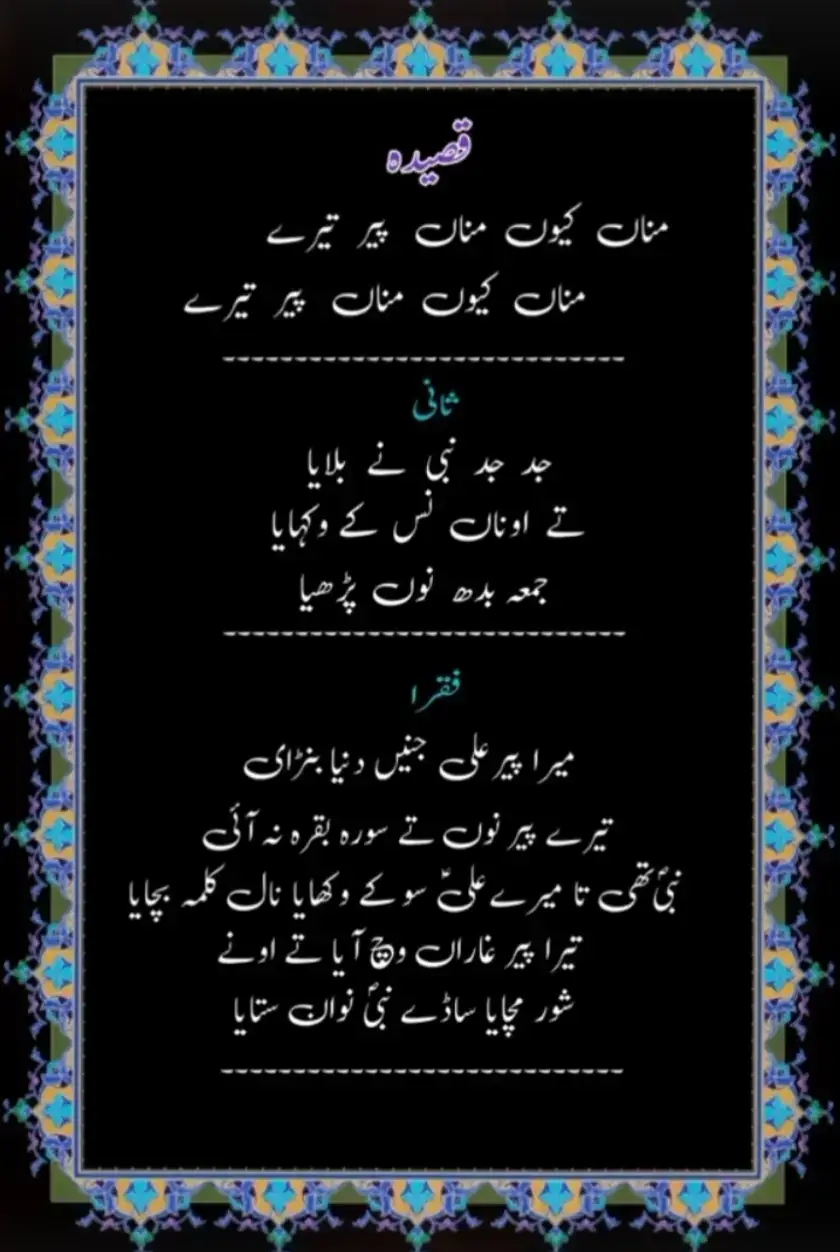 قصیدہ
مناں کیوں مناں پیر تیرے
مناں کیوں مناں پیر تیرے
ثانی
جد جد نبی نے بلایا
تے اوناں نس کے وکہایا
جمعہ بدھ نوں پڑھیا
فقرا
میرا پیر علی جنیں دنیا بنڑای
تیرے پیر نوں تے سورہ بقرہ نہ آئی
نبیؐ تھی تا میرے علیؑ سو کے وکھایا نال کلمہ بچایا
تیرا پیر غاراں وچ آیا تے اونے
شور مچایا ساڈے نبیؐ نواں ستایا